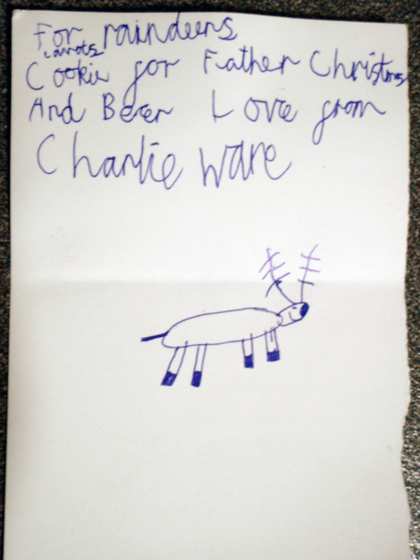 For raindeers
carrots
Cookie for Father Christmas
And Beer Love from
Charlie ware